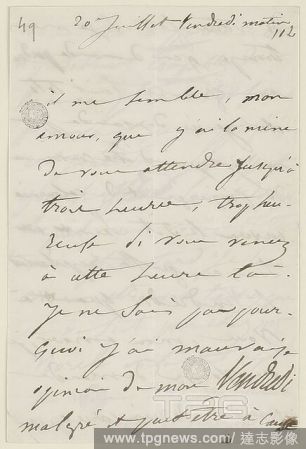 49
20 Juillet Vendredi matin
112
il me semble, mon
amour, que j'ai la mine
de vous attendre jusqu'à
trois heures, trop heu-
reuse si vous venez
à cette heure là.
Je ne sais pas pour-
quoi j'ai mauvaise
opinion de mon Vendredi
malgré et peut être à cause
TPG
www.tpgnews.com 達志影像